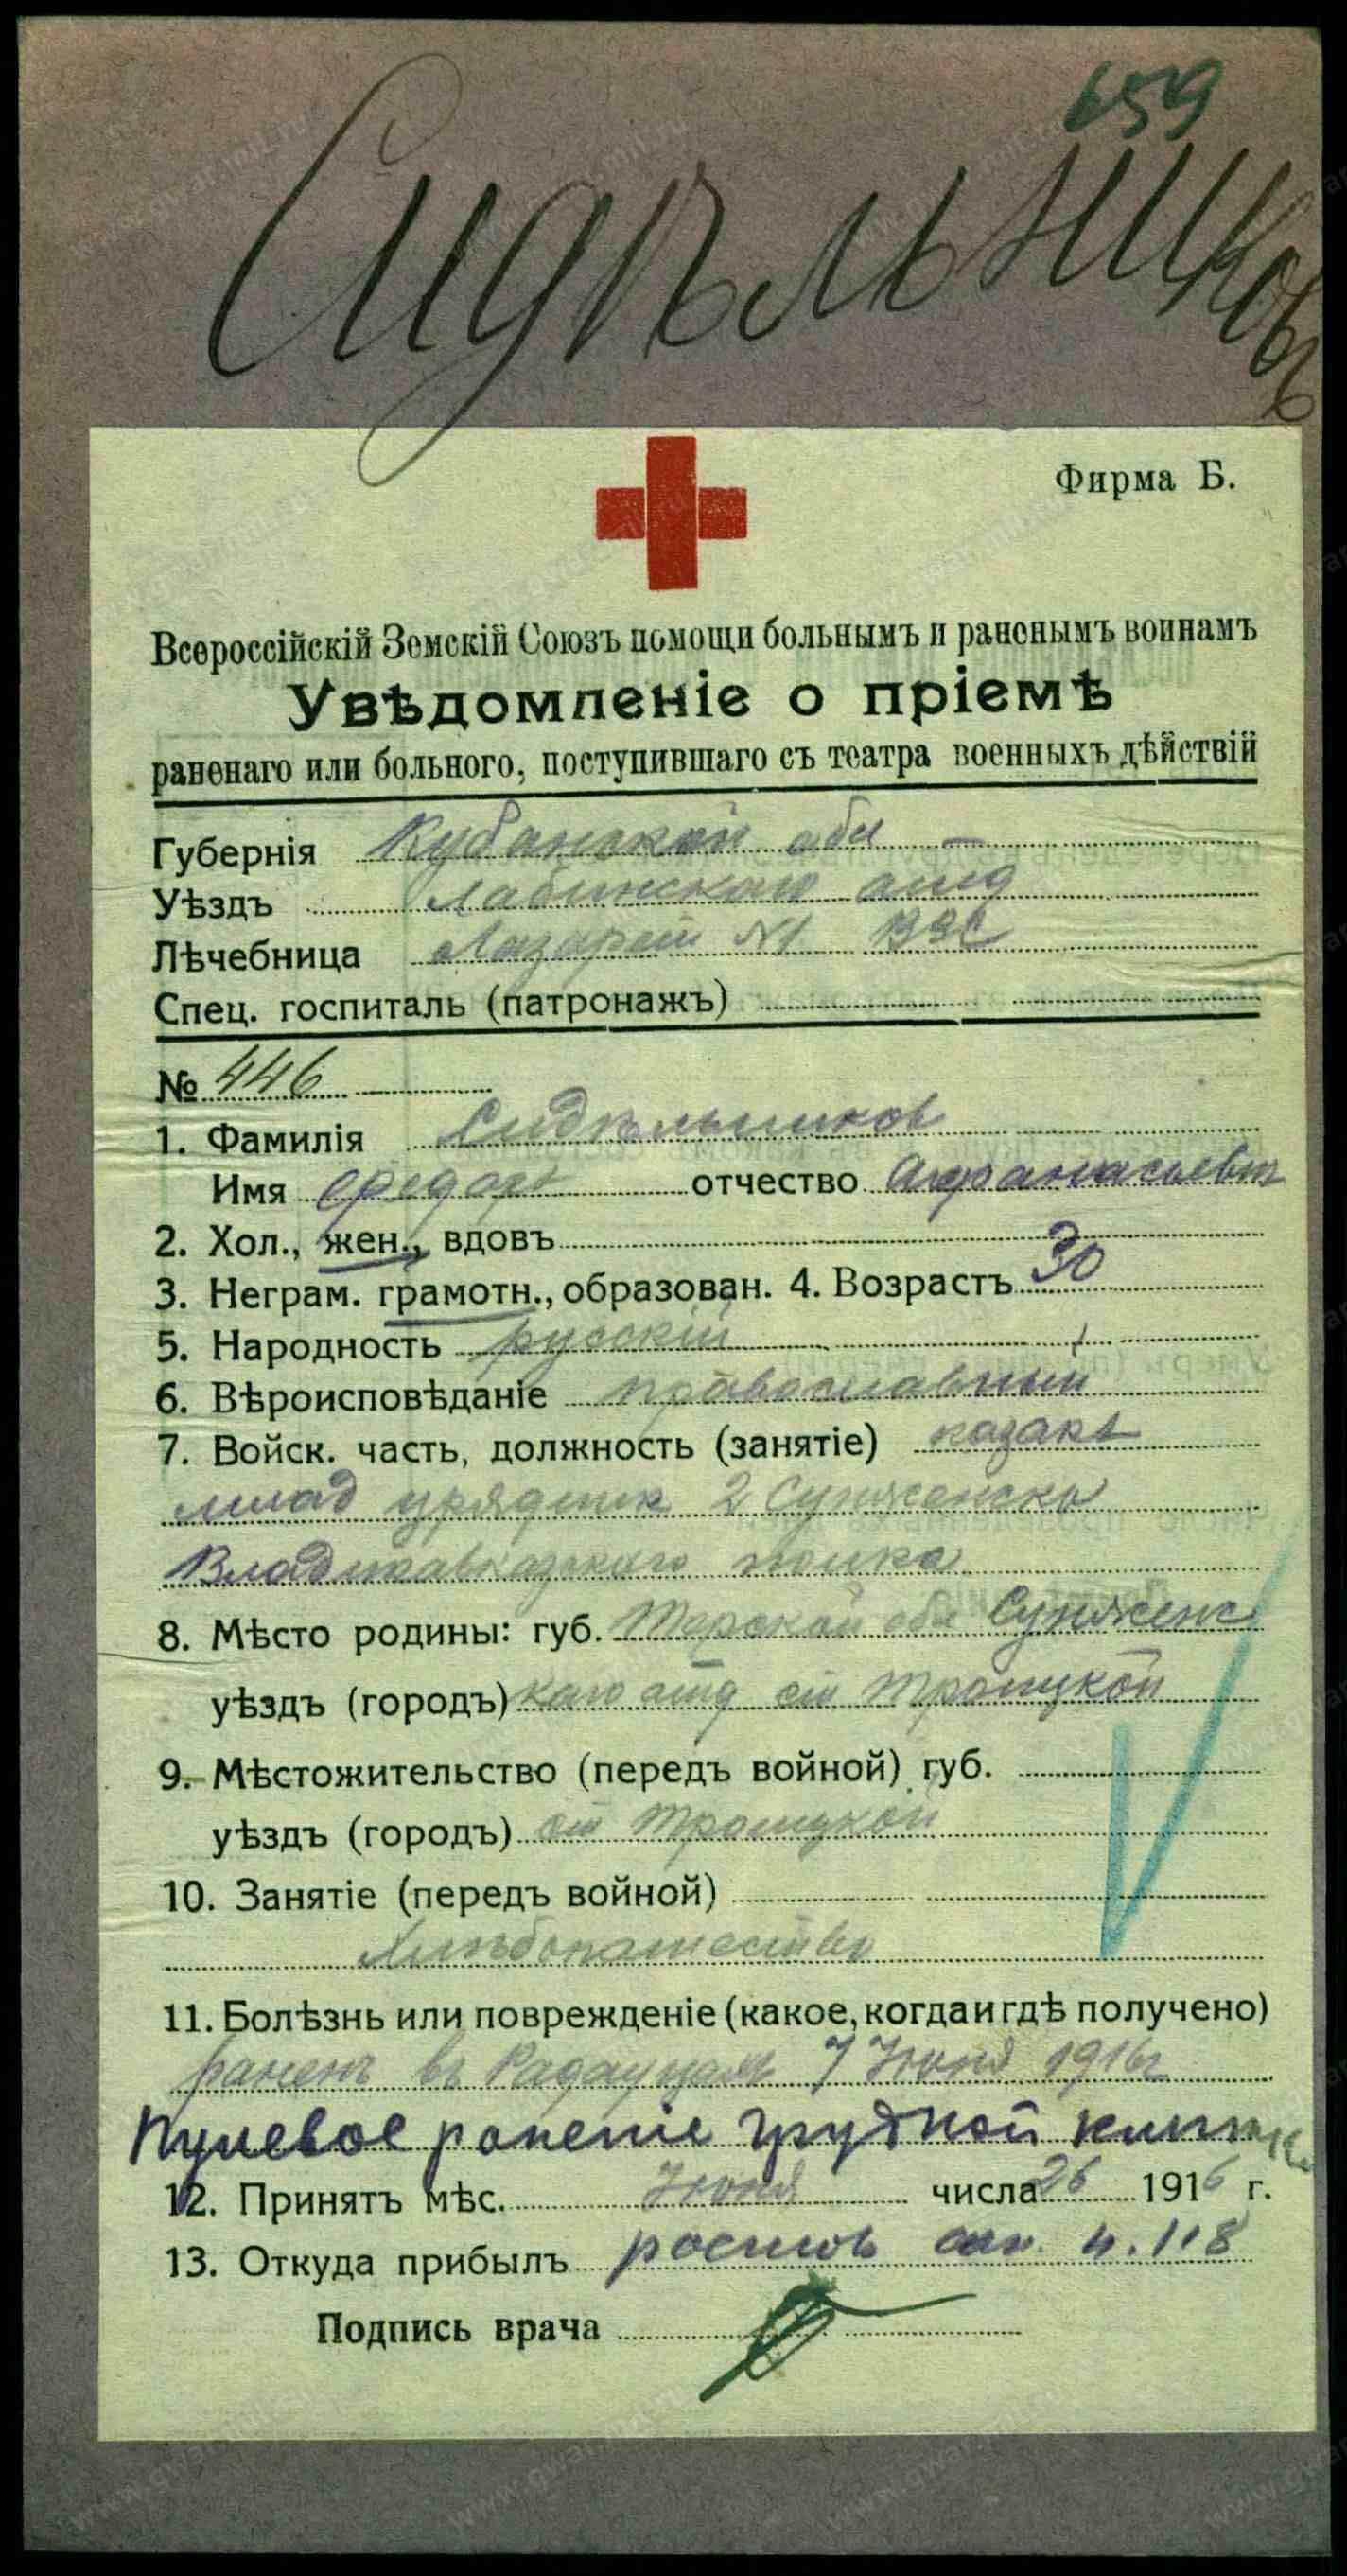 659
Сидѣльниковъ
Фирма Б.
Всероссійскій Земскій Союзъ помощи больнымъ и раненымъ воинамъ
Увѣдомленіе о пріемѣ
раненаго или больного, поступившаго съ театра военныхъ дѣйствій
Губернія Кубанской обл
Уѣздъ Лабинскаго отд
Лѣчебница Лазарет N1 ВЗС
Спец. госпиталь (патронажъ)
№ 446
1. Фамилія Сидѣльников
Имя Федоръ отчество Афанасьевъ
2. Хол., жен., вдовъ
3. Неграм. грамотн., образован. 4. Возрастъ 30
5. Народность русскій
6. Вѣроисповѣданіе православный
7. Войск. часть, должность (занятіе) казакъ
млад урядник 2 Сунженско
Владикавказскаго полка
8. Мѣсто родины: губ. Терской обл Сунженс
уѣздъ (городъ) каго отд ст Троицкой
9. Мѣстожительство (передъ войной) губ.
уѣздъ (городъ) ст Троицкой
10. Занятіе (передъ войной)
Хлѣбопашество
11. Болѣзнь или поврежденіе (какое, когда и гдѣ получено)
ранен въ Радауцах 7 Июня 1916г
Пулевое ранение грудной клѣтки
12. Принятъ мѣс. Июня числа 26 1916 г.
13. Откуда прибылъ ростов сан. п. 118
Подпись врача